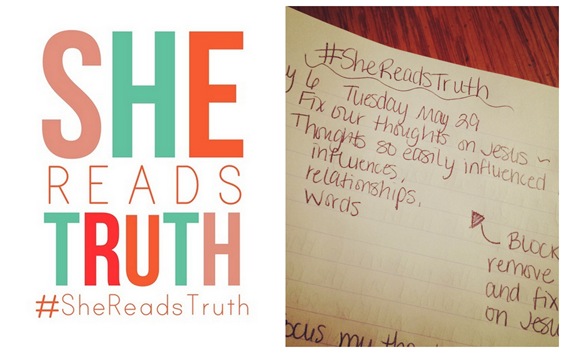 SHE
READS
TRUTH
#SheReadsTruth
#SheReadsTruth
y 6 Tuesday May 29
Fix our thoughts on Jesus ~
Thoughts so easily influenced
influences,
relationships,
words
Block
remove
and fix
on Jesu
ocus my tho